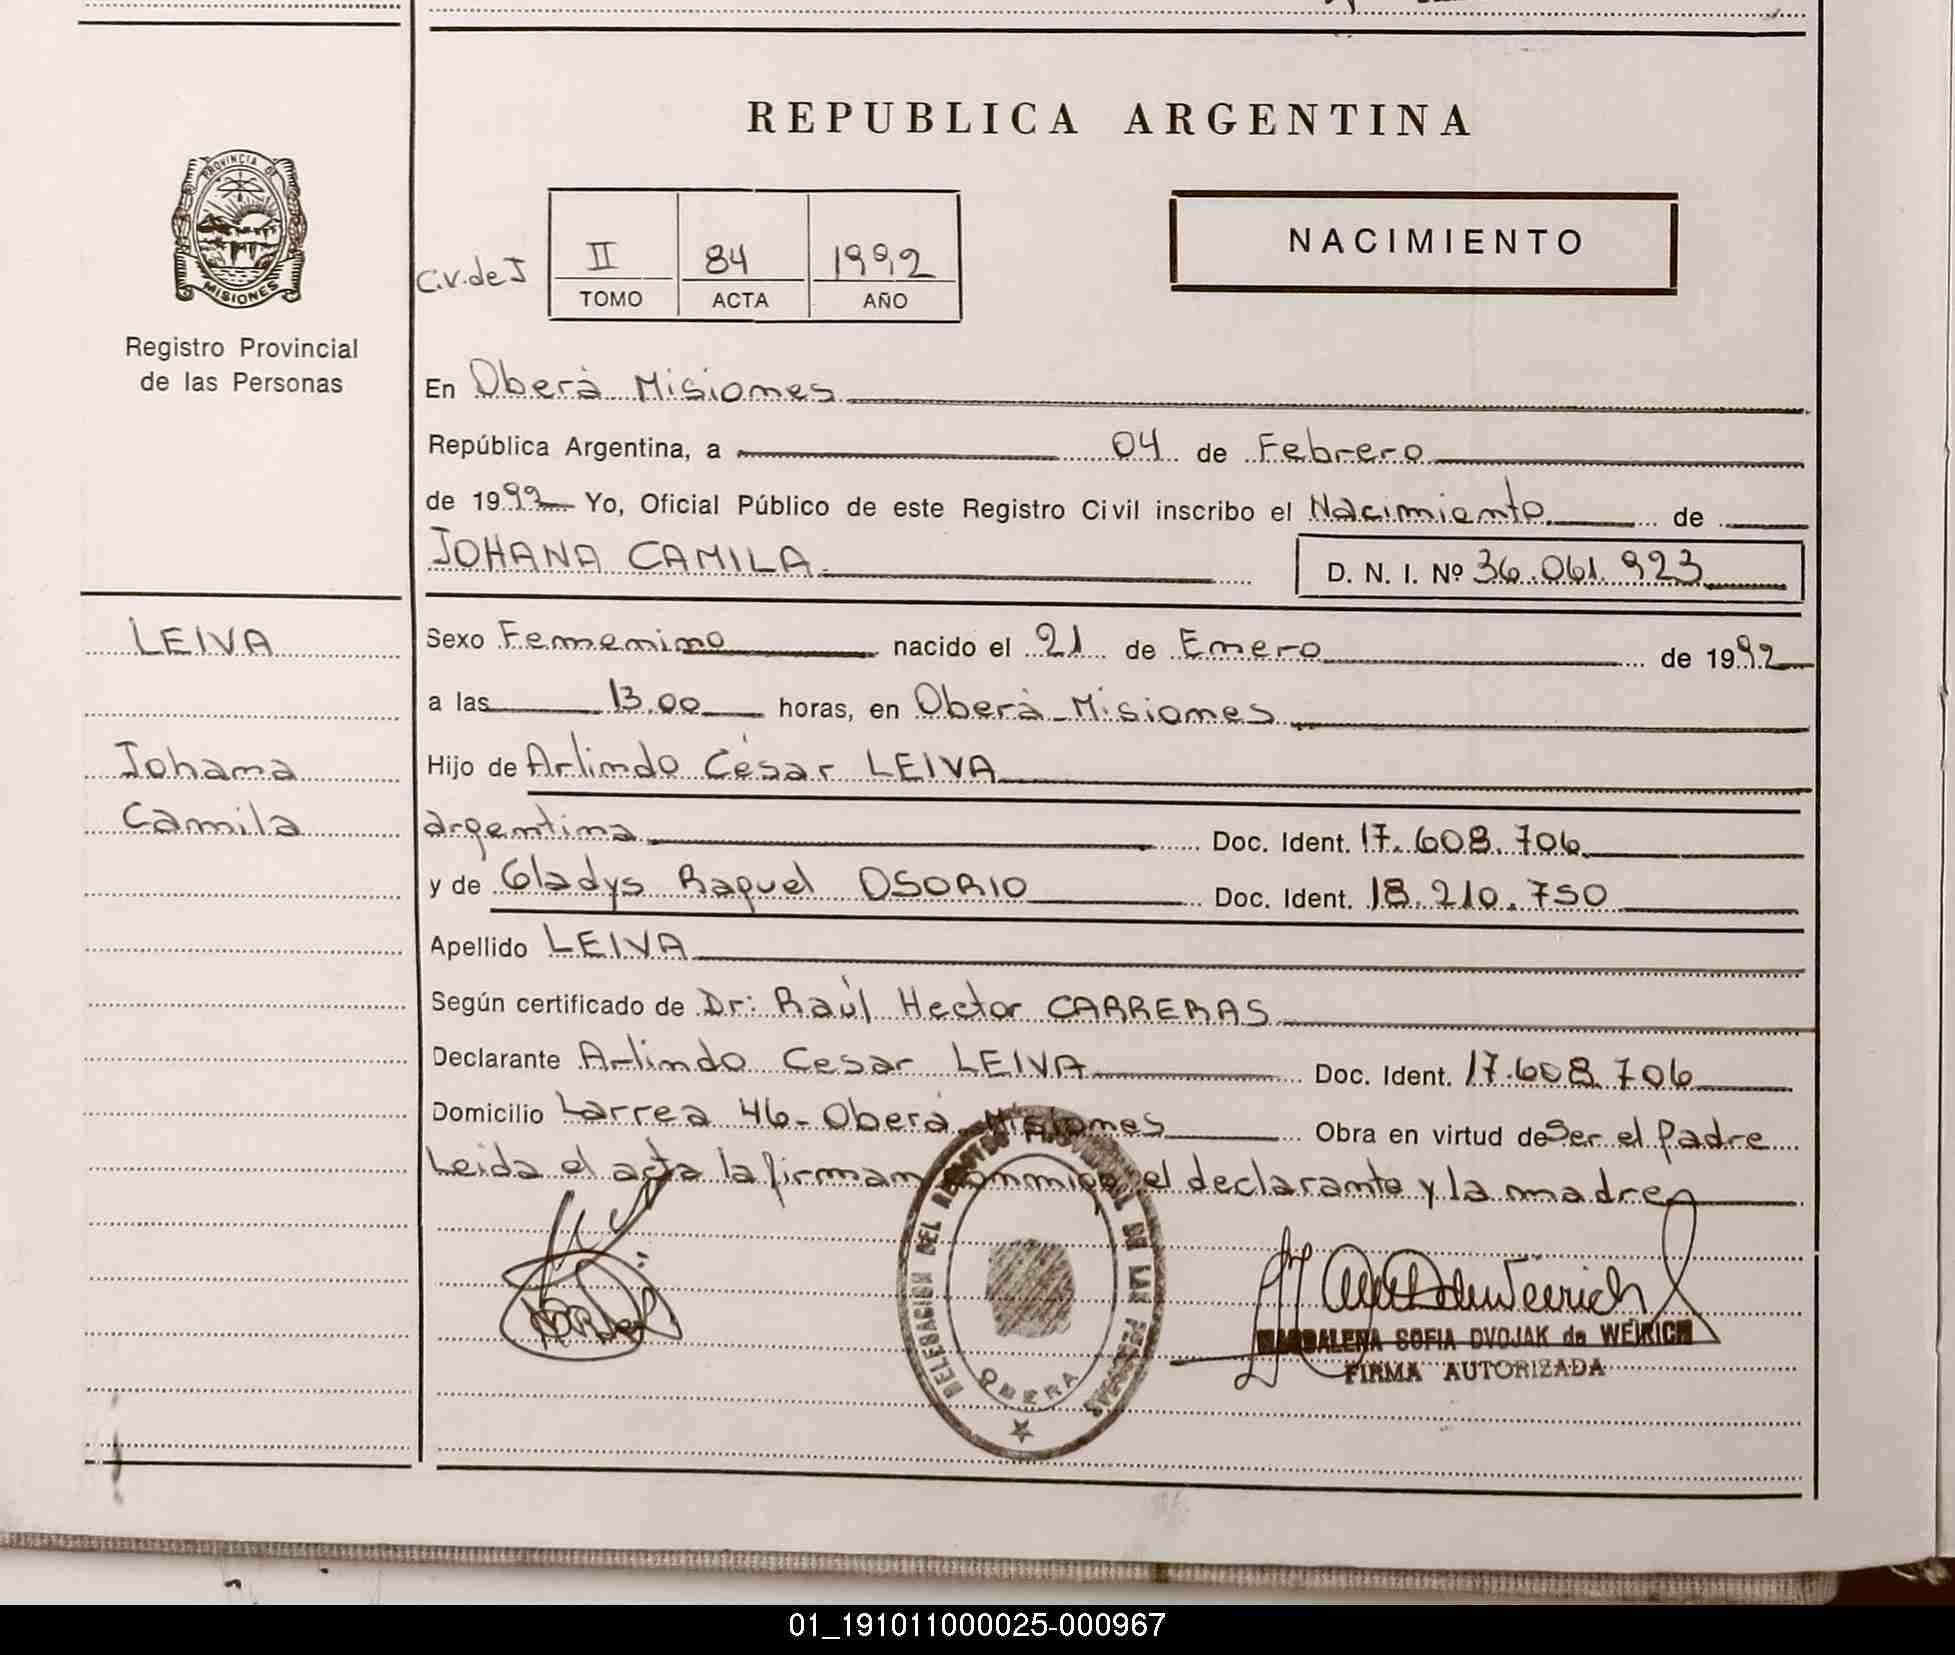 REPUBLICA ARGENTINA
PROVINCIA DE
MISIONES
Registro Provincial
de las Personas
C.V. de J
II 84 1992
TOMO ACTA AÑO
NACIMIENTO
En Oberà Misiones
República Argentina, a 04 de Febrero
de 1992 Yo, Oficial Público de este Registro Civil inscribo el Nacimiento de
JOHANA CAMILA D. N. I. Nº 36.061.923
LEIVA
Johana
Camila
Sexo Femenino nacido el 21 de Enero de 1992
a las 13.00 horas, en Oberà-Misiones
Hijo de Arlindo César LEIVA
argentina Doc. Ident. 17.608.706
y de Gladys Raquel OSORIO Doc. Ident. 18.210.750
Apellido LEIVA
Según certificado de Dr: Raúl Hector CARRERAS
Declarante Arlindo Cesar LEIVA Doc. Ident. 17.608.706
Domicilio Larrea 46-Oberá Misiones Obra en virtud de Ser el Padre
Leida el acta la firman conmigo el declarante y la madre
DELEGACION DEL REGISTRO PROVINCIAL DE LAS PERSONAS
OBERA
MAGDALENA SOFIA DVOJAK de WEIRICH
FIRMA AUTORIZADA
01_191011000025-000967